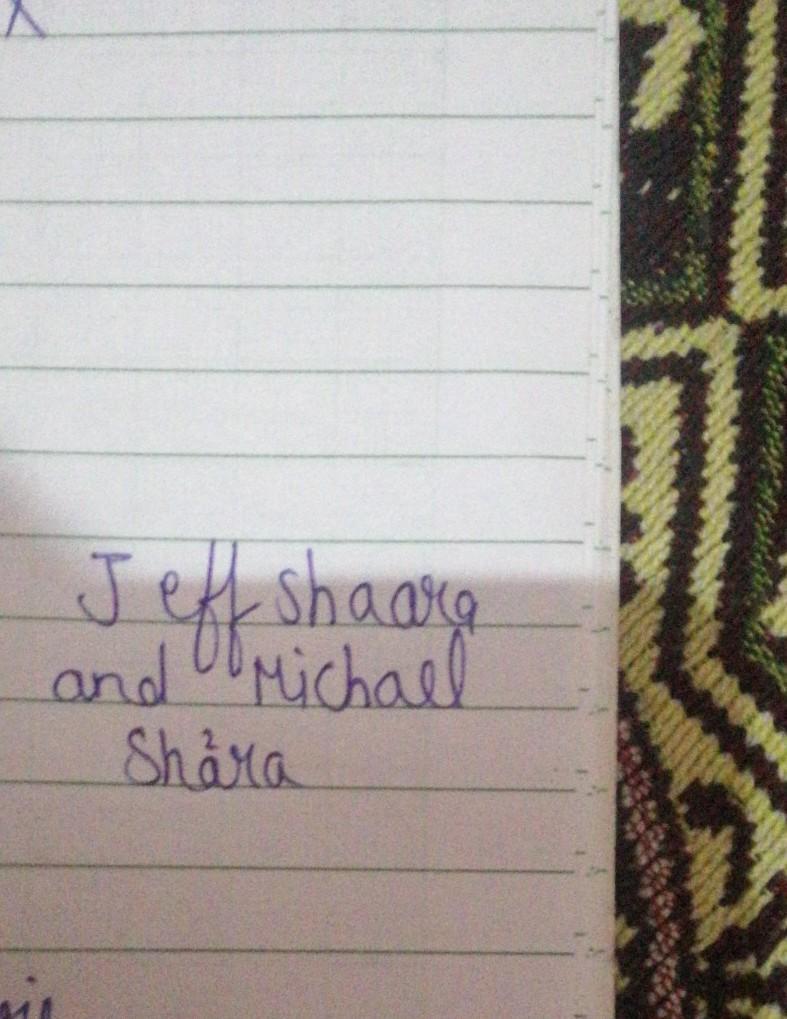 Jeff shaara
and Michael
Shara